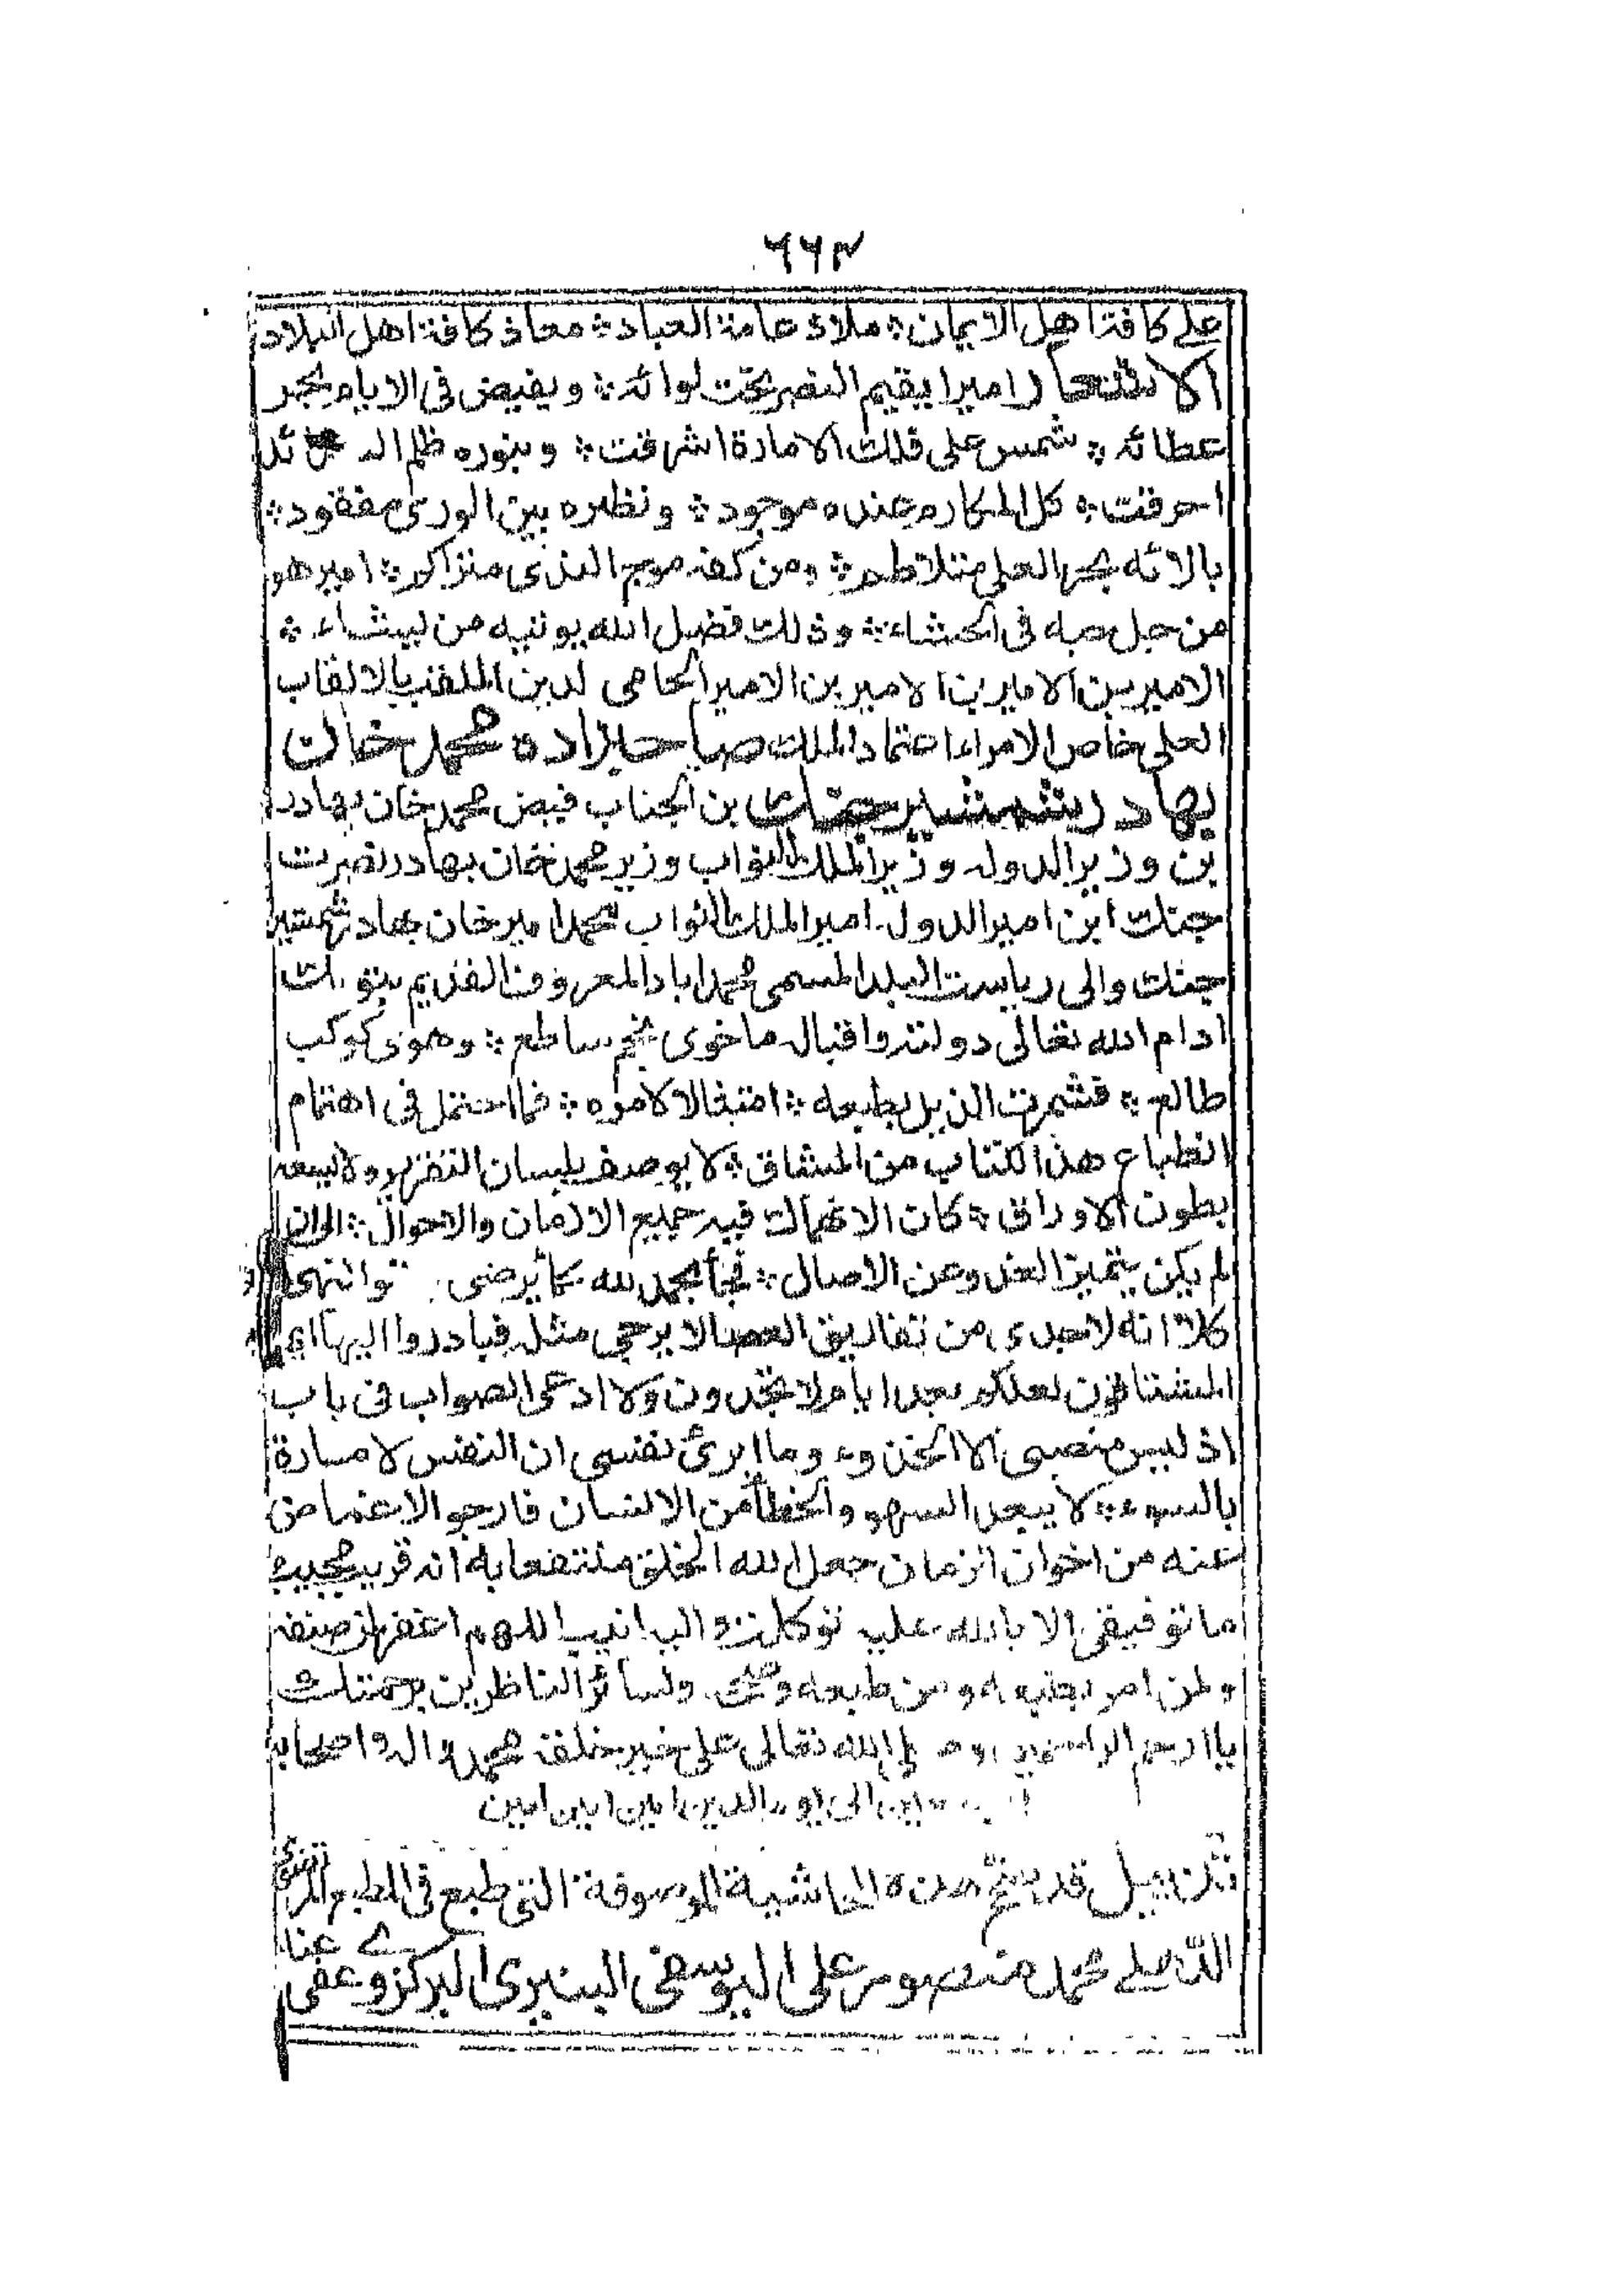 ٦٦٣
علے كافة اهل الايمان؞ ملاذ عامة العباد؞ معاذ كافة اهل البلاد؞
الاشعار اميرا يقيم النصر تحت لوائه؞ ويفيض فى الايام بحر
عطائه؞ شمس على فلك الامارة اشرقت؞ وبنوره ظلم
احرقت؞ كل المكارم عنده موجود؞ ونظيره بين الورى مفقود؞
بالائه بحر العلى متلاطم؞ ومن كفه موج الندى متراكم؞ امير هو
من جل حبه فى الحشاء؞ وذلك فضل الله يوتيه من يشاء؞
الامير بن الامير بن الامير بن الامير الحامى لدين الملقب بالالقاب
العلى خاص الامراء اعتماد الملك صاحبزاده محمد خان
بهادر شمشير جنك بن الجناب فيض محمد خان بهادر
بن وزير الدوله وزير الملك النواب وزير محمد خان بهادر نصرت
جنك ابن امير الدوله امير الملك النواب محمد امير خان بهادر شمشير
جنك والى رياست البلد المسمى محمد اباد المعروف القديم بتونك
ادام الله تعالى دولته واقباله ماخوى نجم ساطع؞ وهوى كوكب
طالع؞ فشمرت الذيل بطبعه؞ امتثالا لامره؞ فما احتمل فى اهتمام
انطباع هذا الكتاب من المشاق؞ لا يوصف بلسان التقرير ولا يسعه
بطون الاوراق؞ كان الانهماك فيه جميع الازمان والاحوال؞ الى ان
لم يكن يتميز الغدو عن الاصال؞ فجأ بحمد لله كما يرضى
كلا انه لاجدى من تفاريق العصا لا يرجى مثله فبادروا اليها ايها
المشتاقون لعلكم بعد ايام لا تجدون ولا ادعى الصواب فى باب
اذ ليس منصبى الا الحذو، وما ابرئ نفسى ان النفس لامارة
بالسوء؞ لا يبعد السهو والخطأ من الانسان فارجو الاغماض
عنه من اخوان الزمان جعل الله الخلق منتفعا به انه قريب مجيب
ما توفيقى الا بالله عليه توكلت واليه انيب اللهم اغفر لمن صنفه
ولمن امر بطبعه ومن طبعه ولسائر الناظرين برحمتك
يا ارحم الراحمين وصلى الله تعالى على خير خلقه محمد واله واصحابه
الى يوم الدين امين امين امين
تذييل قد نقح هذه الحاشية الموصوفة التى طبع فى المطبع
الله صلے محمد منصور على اليوسفى البنيرى عفى